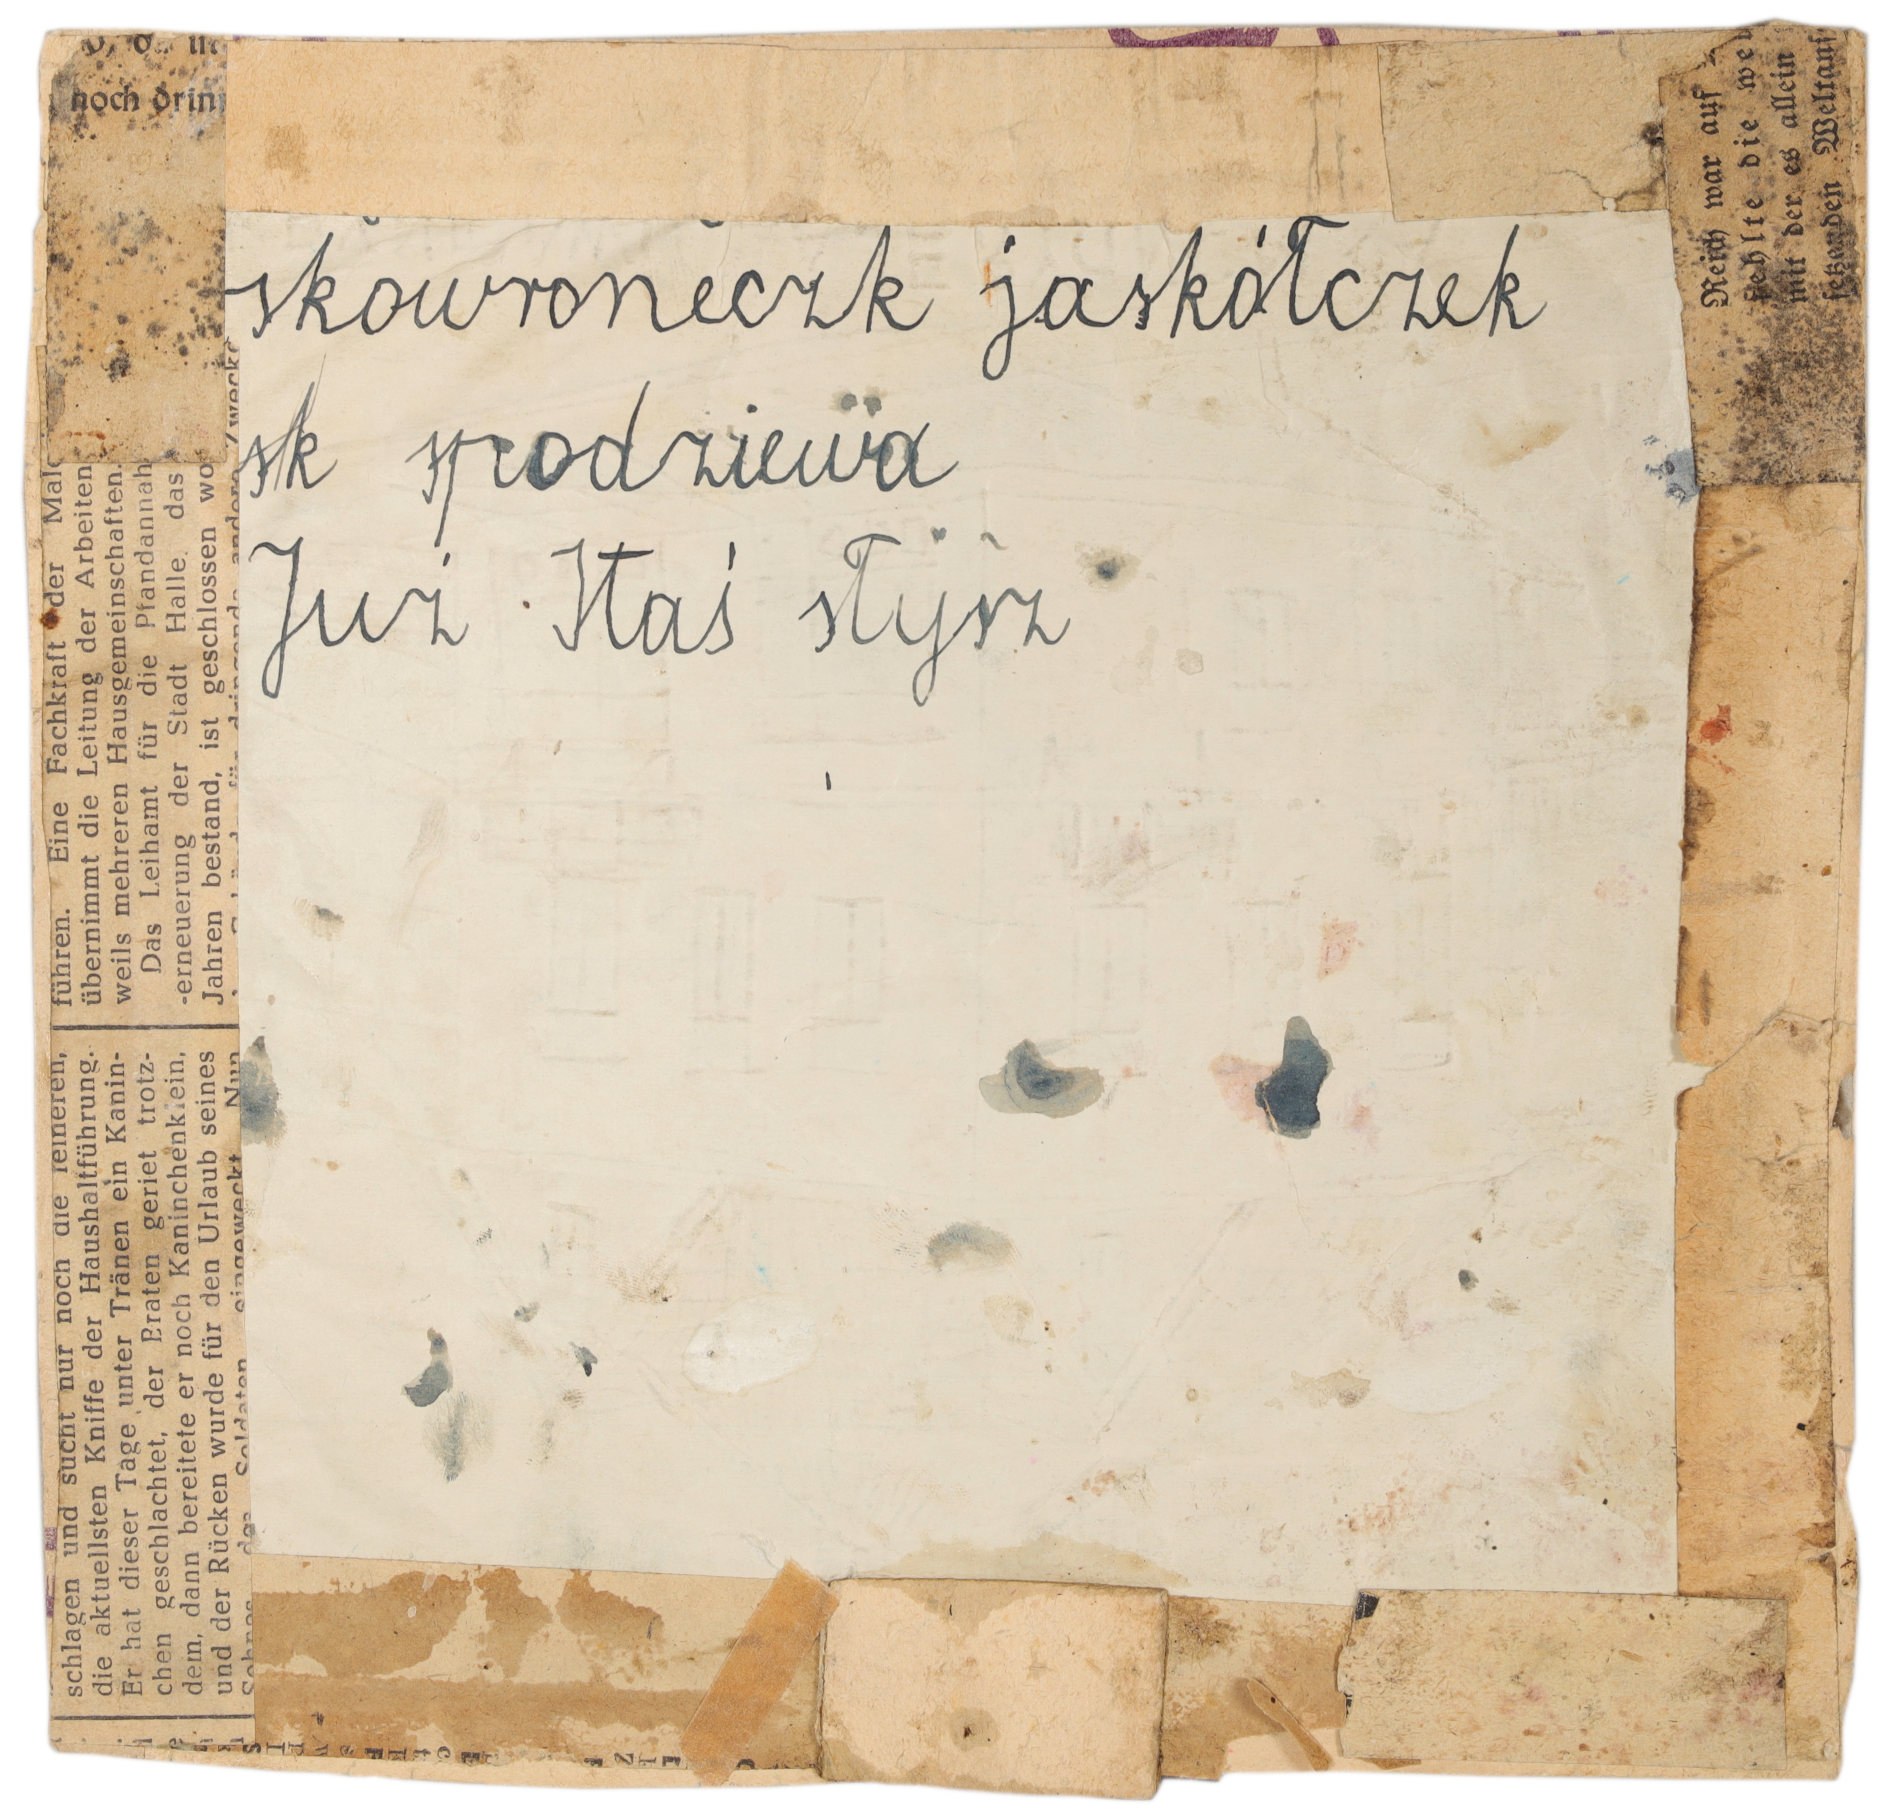 noch drin
skowroneczk jaskółczek
sk spodziewa
Już Staś słysz
führen. Eine Fachkraft der Mal
übernimmt die Leitung der Arbeiten
weils mehreren Hausgemeinschaften.
Das Leihamt für die Pfandannah
-erneuerung der Stadt Halle, das
Jahren bestand, ist geschlossen wo
schlagen und sucht nur noch die feineren,
die aktuellsten Kniffe der Haushaltführung.
Er hat dieser Tage unter Tränen ein Kanin-
chen geschlachtet, der Braten geriet trotz-
dem, dann bereitete er noch Kaninchenklein,
und der Rücken wurde für den Urlaub seines
Sohnes, des Soldaten, eingeweckt. Nun
Reich war auf
fehlte die we
mit der es allein
setzenden Weltans